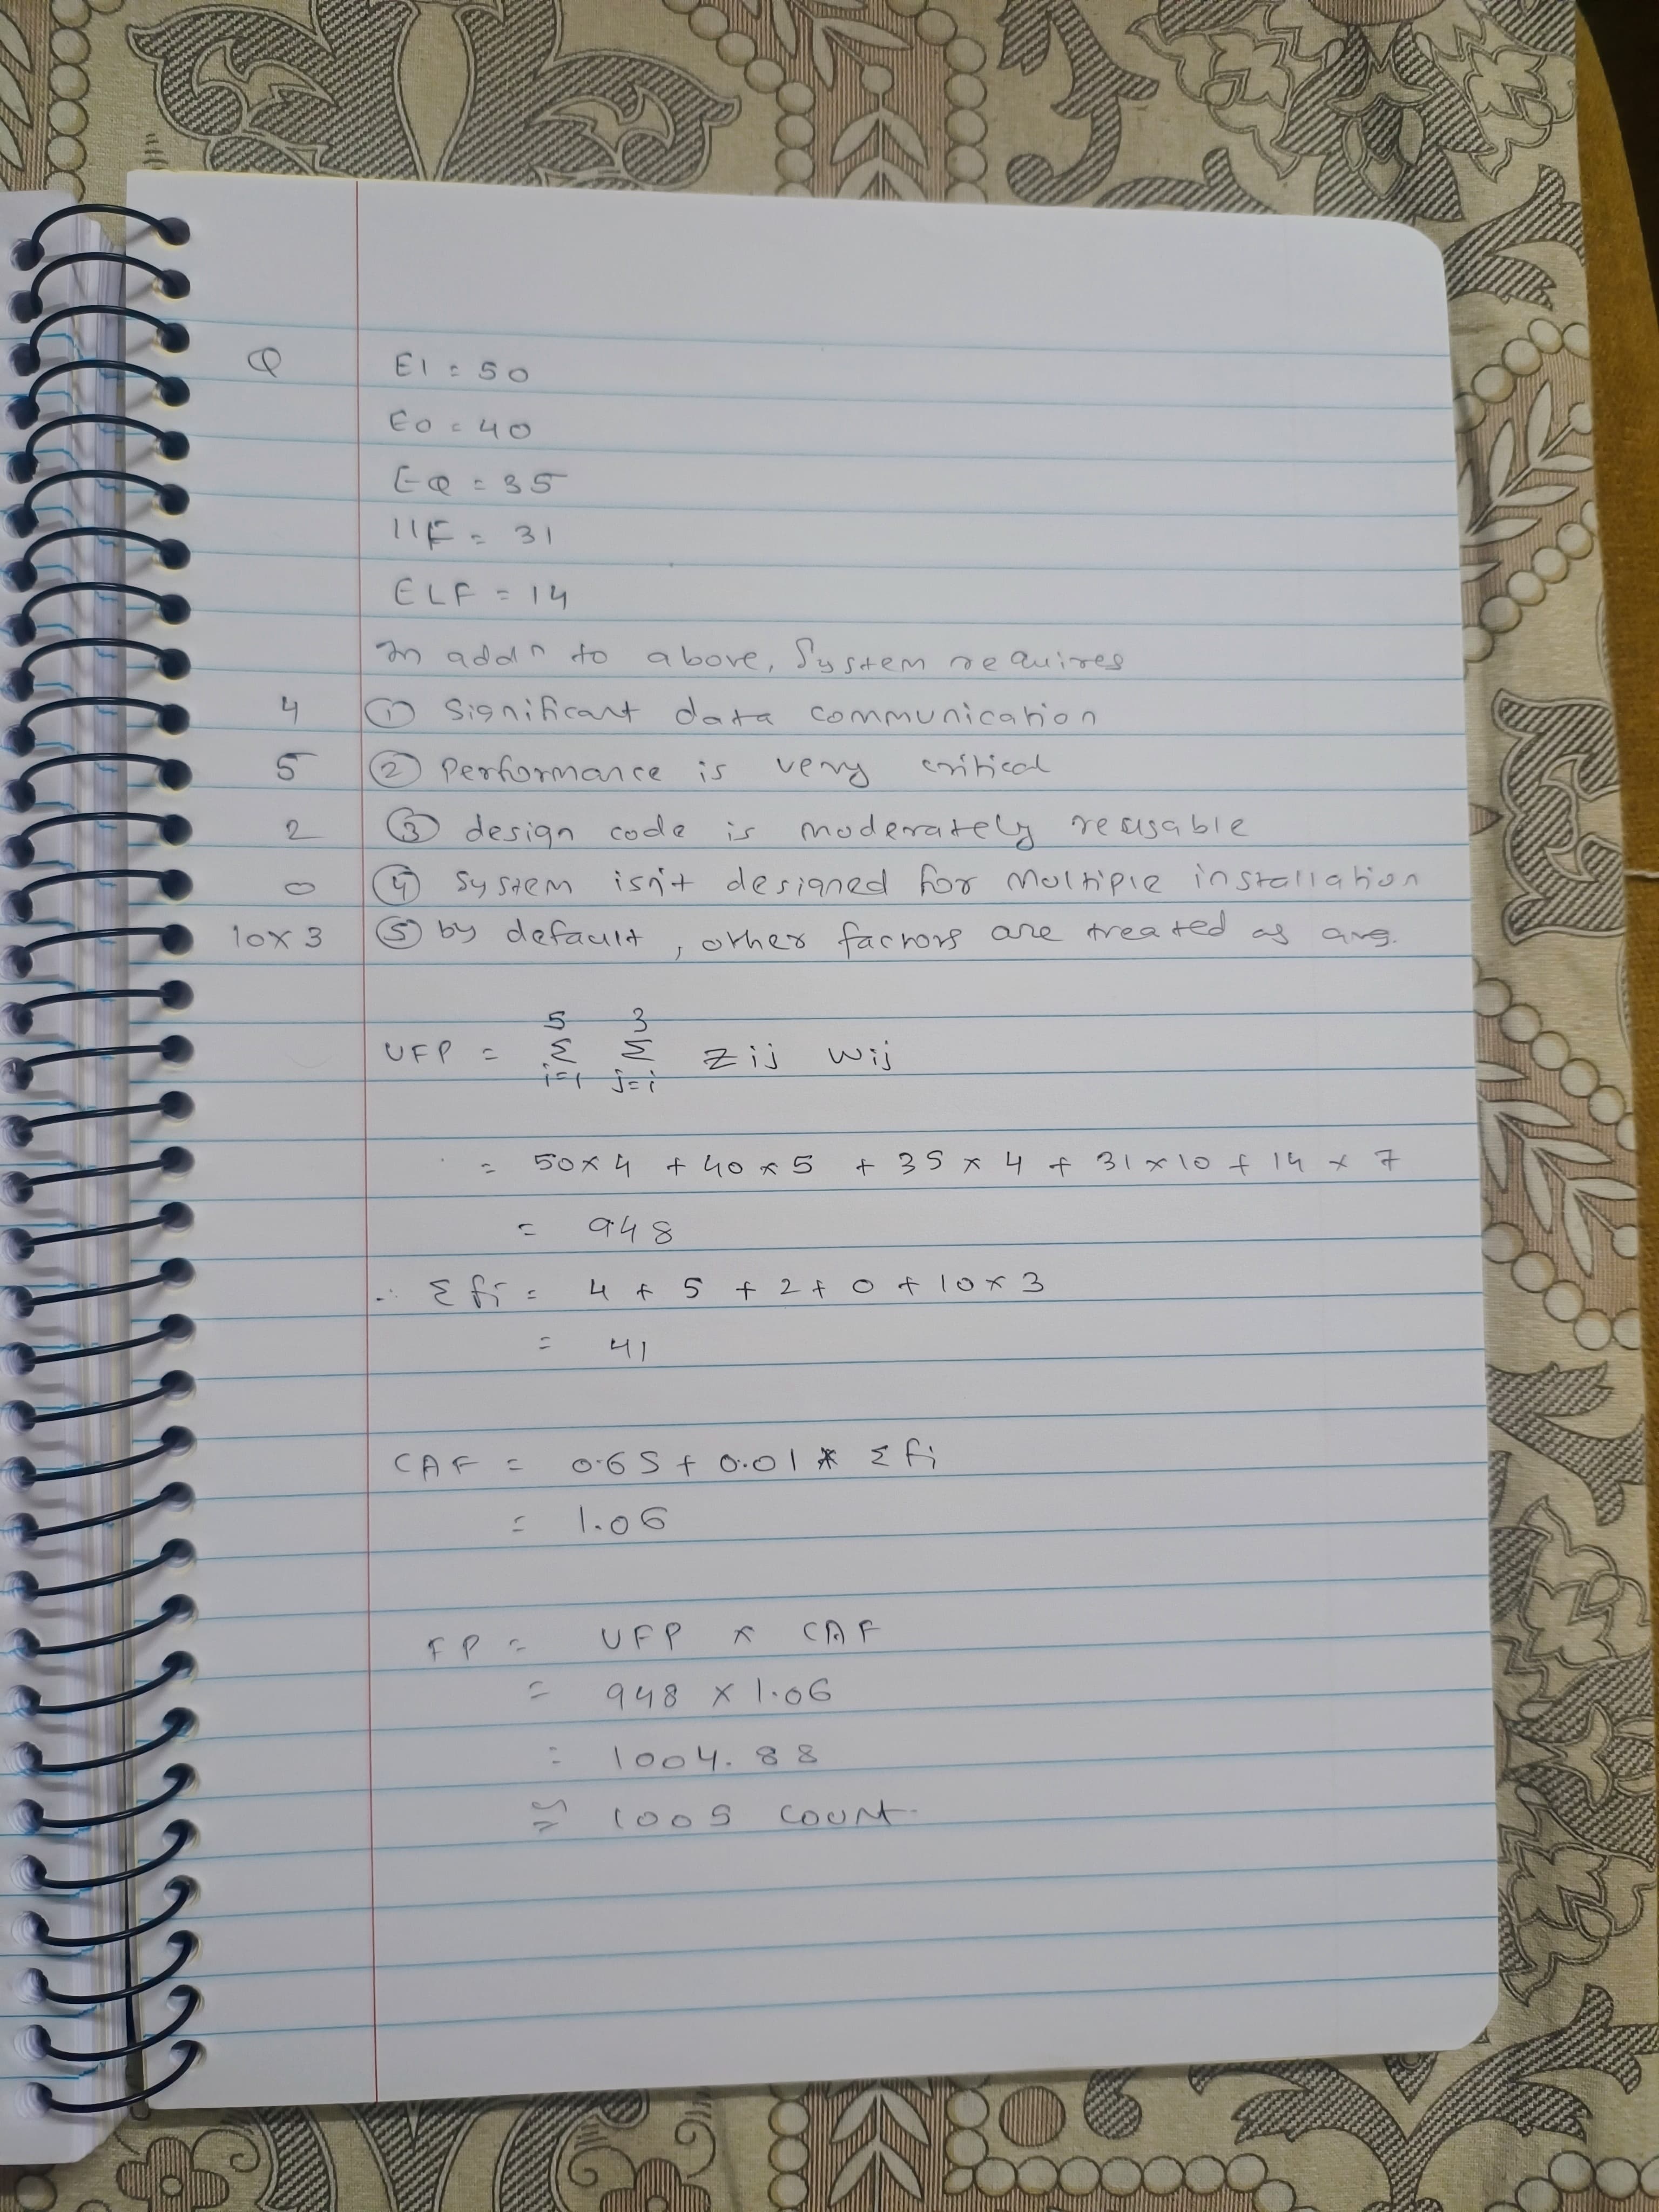 Q EI = 50
EO = 40
EQ = 35
IIF = 31
ELF = 14
In addn to above, System requires
4 ① Significant data communication
5 ② Performance is very critical
2 ③ design code is moderately reusable
0 ④ System isn't designed for multiple installation
10x3 ⑤ by default, other factors are treated as avg.
5 3
UFP = Σ Σ Zij Wij
i=1 j=i
= 50x4 + 40x5 + 35x4 + 31x10 + 14x7
= 948
∴ Σfi = 4 + 5 + 2 + 0 + 10x3
= 41
CAF = 0.65 + 0.01 * Σfi
= 1.06
FP = UFP x CAF
= 948 x 1.06
= 1004.88
≅ 1005 count.